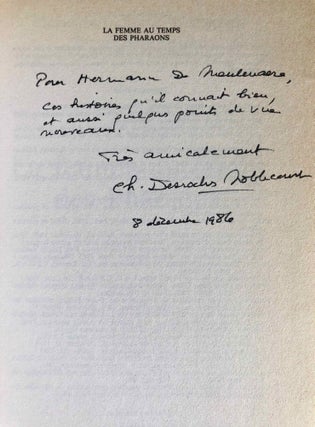 LA FEMME AU TEMPS
DES PHARAONS
Pour Hermann De Meulenaere,
ces histoires qu'il connait bien,
et aussi quelques points de vue
nouveaux.
Très amicalement
Ch. Desroches Noblecourt
8 décembre 1986